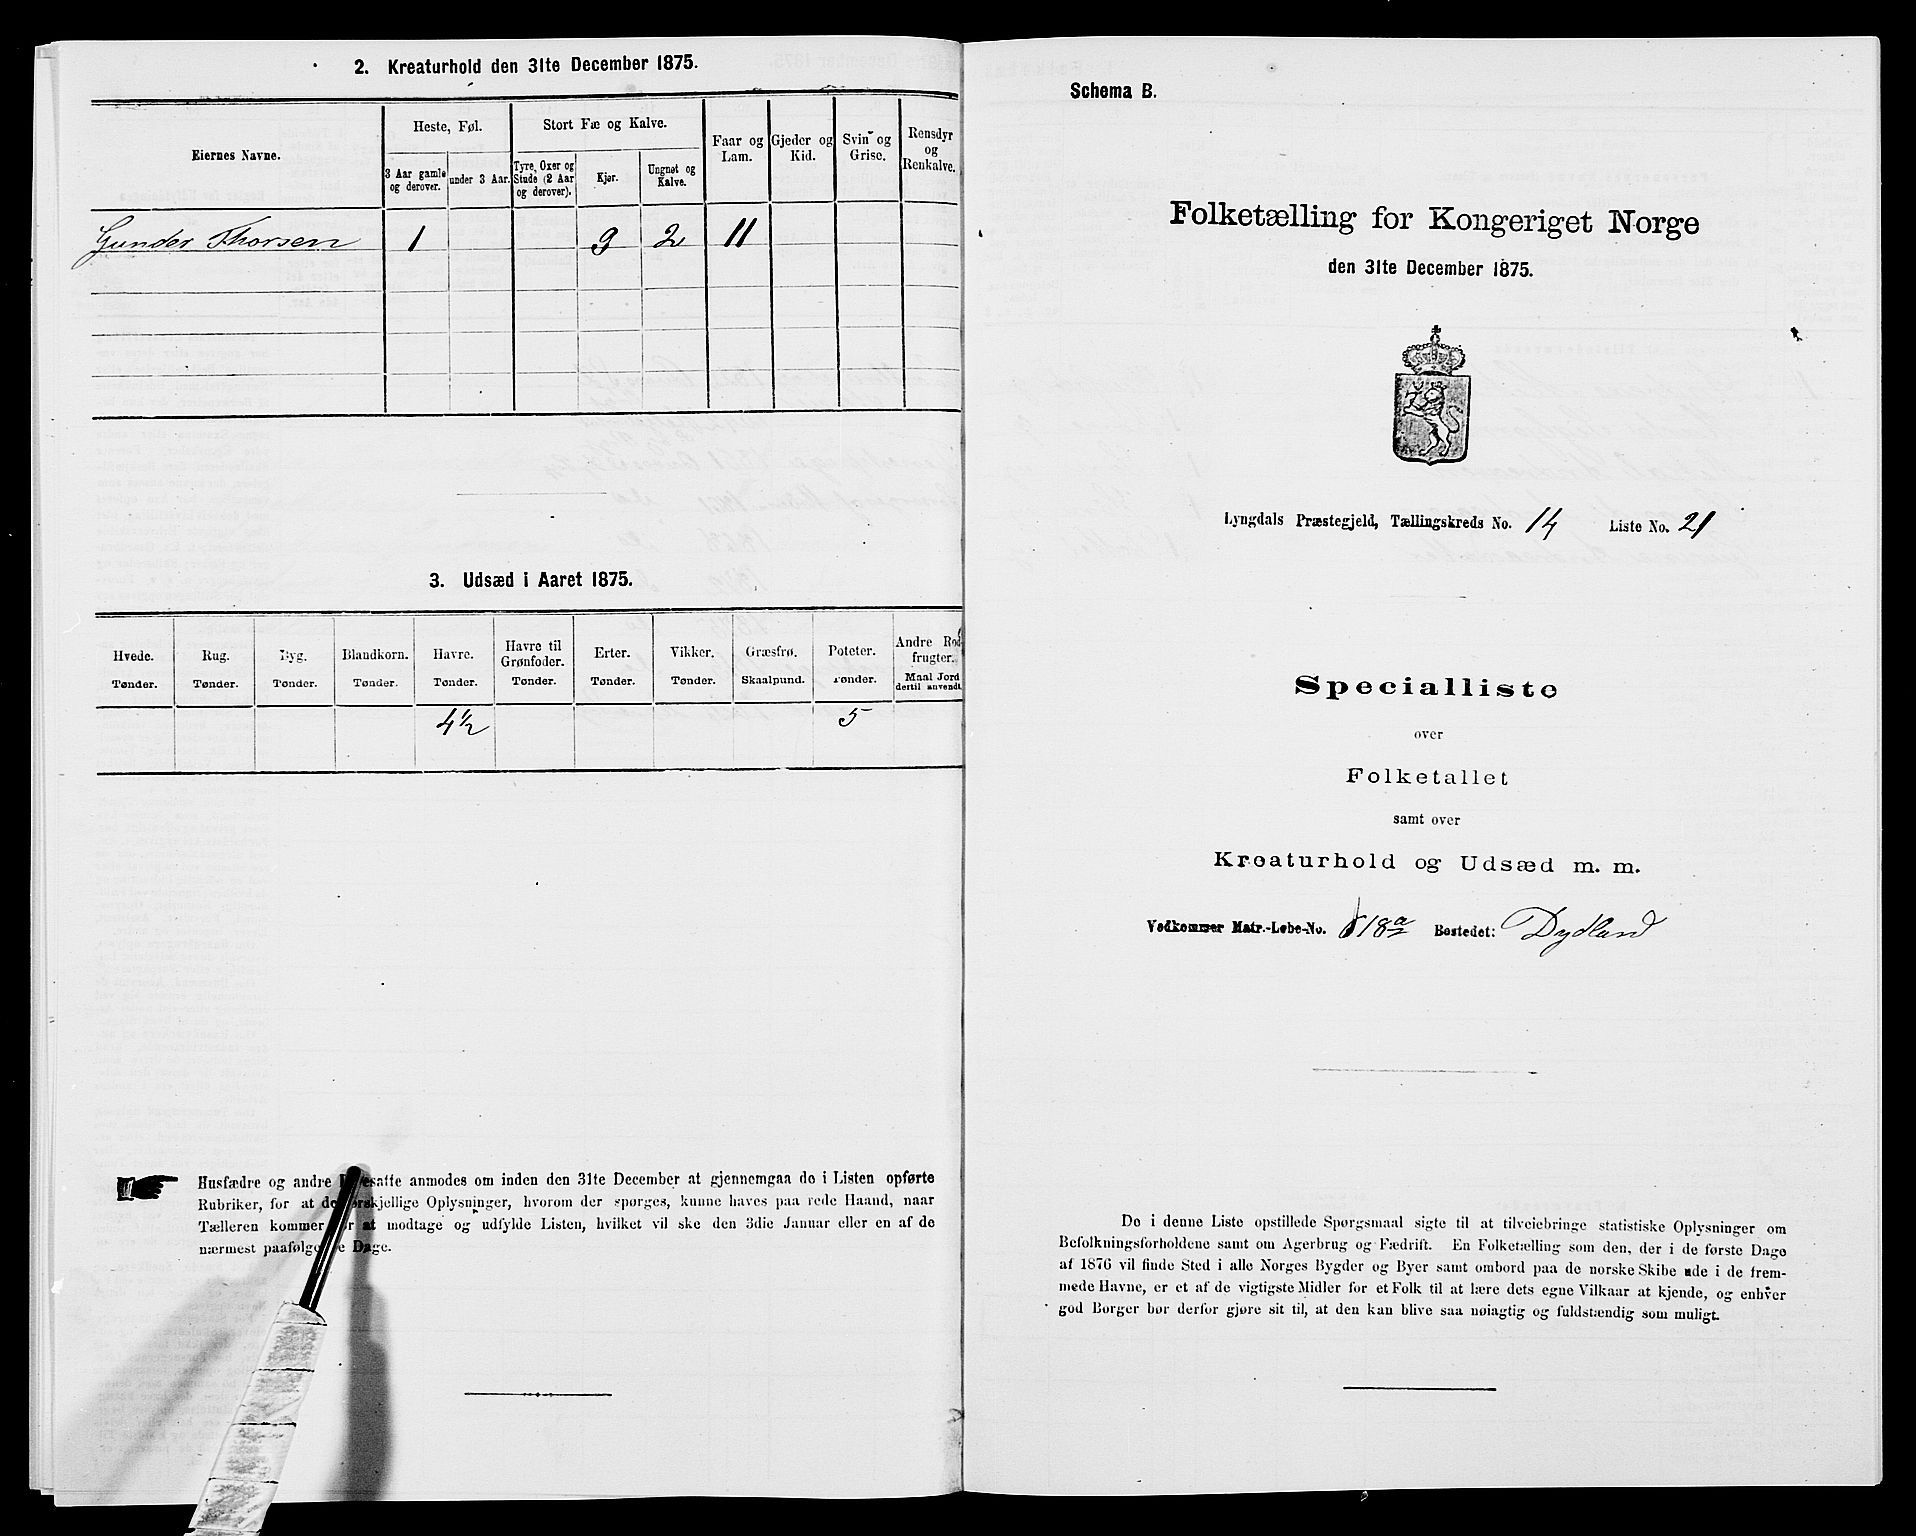 2. Kreaturhold den 31te December 1875.
Eiernes Navne.
Heste, Føl.
Stort Fæ og Kalve.
Faar og Lam.
Gjeder og Kid.
Svin og Grise.
Rensdyr og Renkalve.
3 Aar gamle og derover.
under 3 Aar.
Tyre, Oxer og Stude (2 Aar og derover).
Kjør.
Ungnøt og Kalve.
Gunder Thorsen 1 3 2 11
3. Udsæd i Aaret 1875.
Hvede. Rug. Byg. Blandkorn. Havre. Havre til Grønfoder. Erter. Vikker. Græsfrø. Poteter. Andre Rodfrugter.
Tønder. Tønder. Tønder. Tønder. Tønder. Tønder. Tønder. Tønder. Skaalpund. Tønder. Maal Jord dertil anvendt.
4½ 5
Husfædre og andre Foresatte anmodes om inden den 31te December at gjennemgaa de i Listen opførte
Rubriker, for at de forskjellige Oplysninger, hvorom der spørges, kunne haves paa rede Haand, naar
Tælleren kommer for at modtage og udfylde Listen, hvilket vil ske den 3die Januar eller en af de
nærmest paafølgende Dage.
Schema B.
Folketælling for Kongeriget Norge
den 31te December 1875.
Lyngdals Præstegjeld, Tællingskreds No. 14 Liste No. 21
Specialliste
over
Folketallet
samt over
Kreaturhold og Udsæd m. m.
Vedkommer Matr.-Løbe-No. 118a Bostedet: Dydland
De i denne Liste opstillede Spørgsmaal sigte til at tilveiebringe statistiske Oplysninger om
Befolkningsforholdene samt om Agerbrug og Fædrift. En Folketælling som den, der i de første Dage
af 1876 vil finde Sted i alle Norges Bygder og Byer samt ombord paa de norske Skibe ude i de frem-
mede Havne, er et af de vigtigste Midler for et Folk til at lære dets egne Vilkaar at kjende, og enhver
god Borger bør derfor gjøre sit til, at den kan blive saa nøiagtig og fuldstændig som muligt.